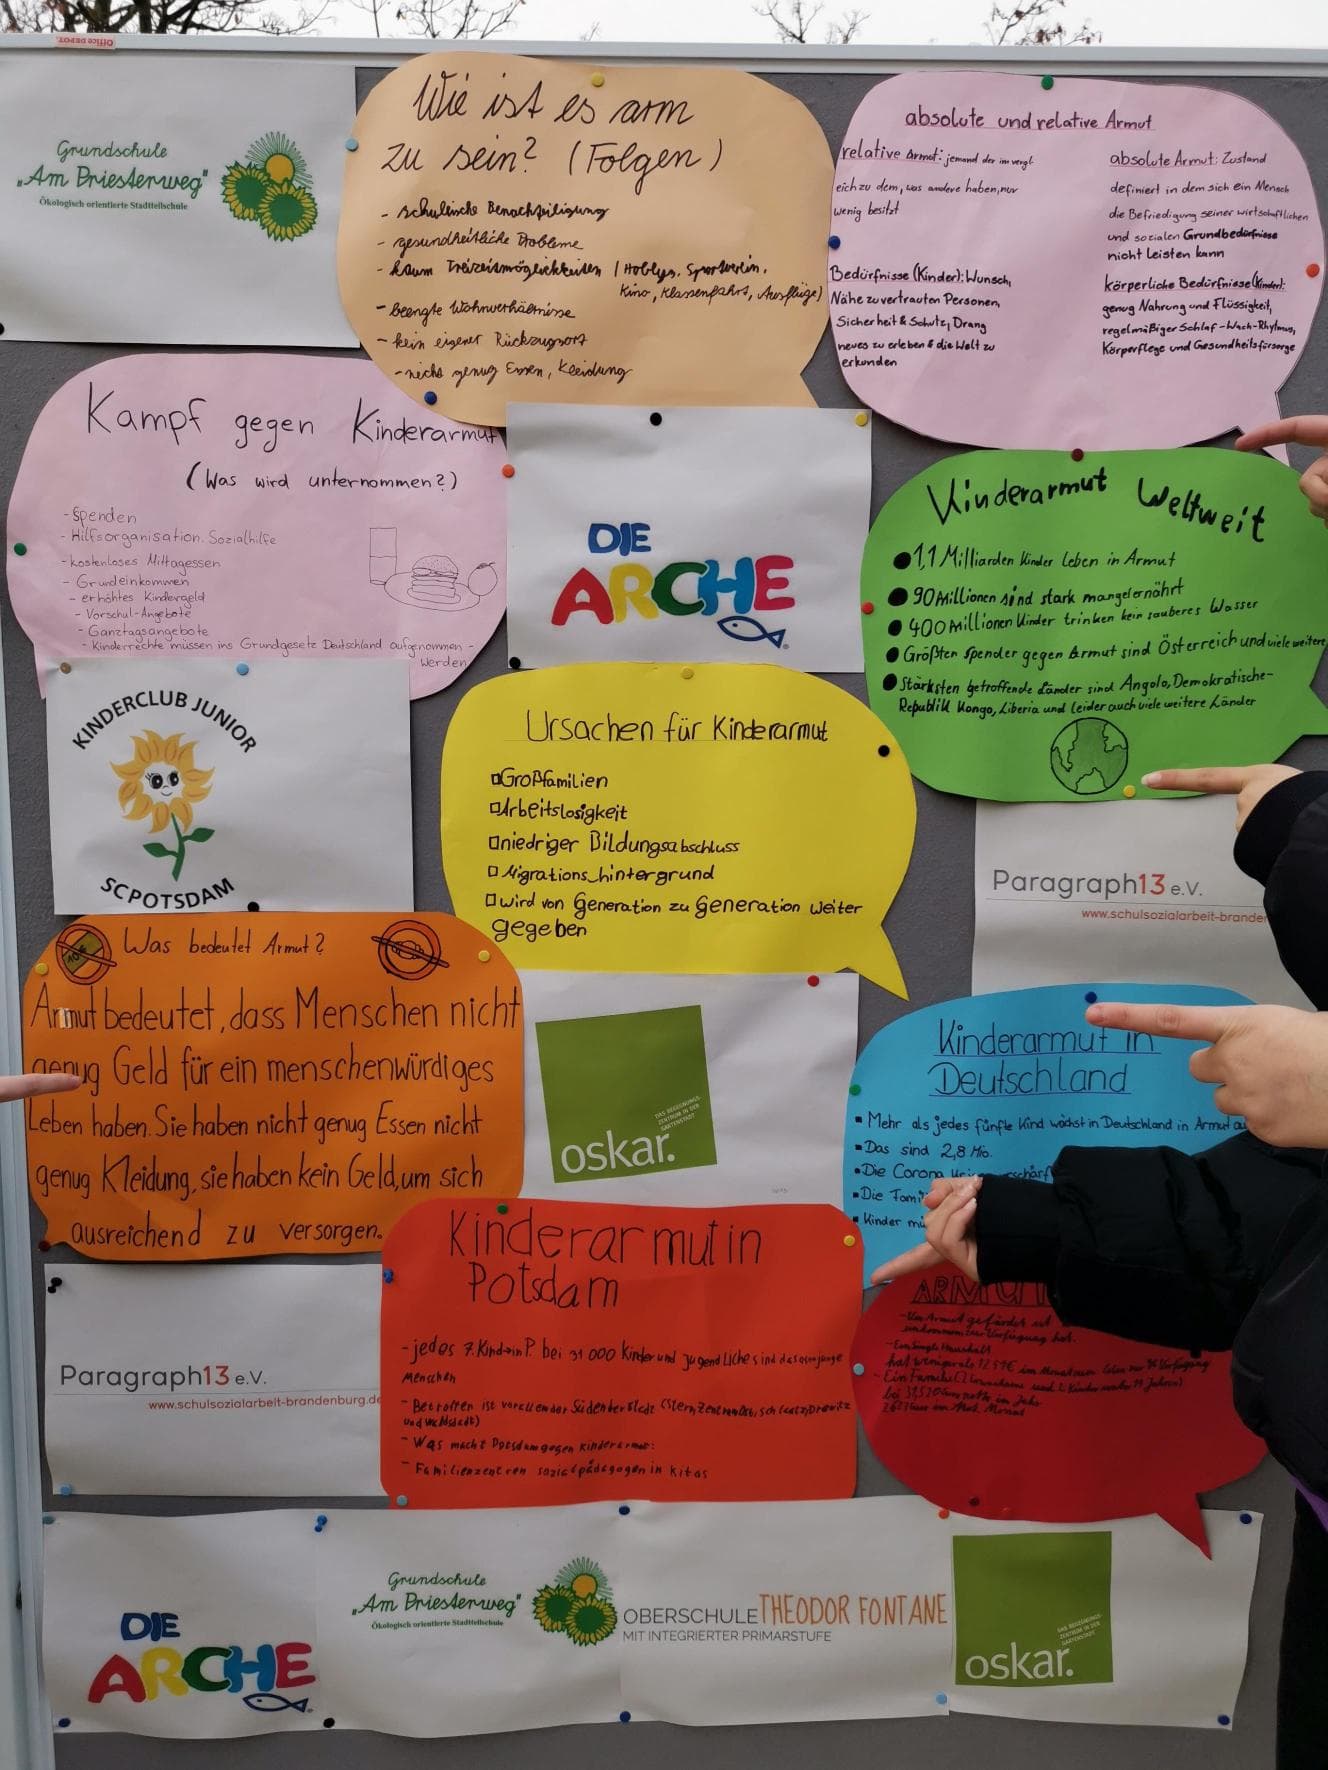 Office DEPOT.
Grundschule
"Am Priesterweg"
Ökologisch orientierte Stadtteilschule
Wie ist es arm
zu sein? (Folgen)
- schulische Benachteiligung
- gesundheitliche Probleme
- kaum Freizeitmöglichkeiten (Hobbys, Sportverein,
Kino, Klassenfahrt, Ausflüge)
- beengte Wohnverhältnisse
- kein eigener Rückzugsort
- nicht genug Essen, Kleidung
absolute und relative Armut
relative Armut: jemand der im vergl
eich zu dem, was andere haben, nur
wenig besitzt
Bedürfnisse (Kinder): Wunsch,
Nähe zu vertrauten Personen,
Sicherheit & Schutz, Drang
neues zu erleben & die Welt zu
erkunden
absolute Armut: Zustand
definiert in dem sich ein Mensch
die Befriedigung seiner wirtschaftlichen
und sozialen Grundbedürfnisse
nicht leisten kann
körperliche Bedürfnisse (Kinder):
genug Nahrung und Flüssigkeit,
regelmäßiger Schlaf-Wach-Rhytmus,
Körperpflege und Gesundheitsfürsorge
Kampf gegen Kinderarmut
(Was wird unternommen?)
- Spenden
- Hilfsorganisation. Sozialhilfe
- kostenloses Mittagessen
- Grundeinkommen
- erhöhtes Kindergeld
- Vorschul-Angebote
- Ganztagsangebote
- Kinderrechte müssen ins Grundgesetz Deutschland aufgenommen -
werden
DIE
ARCHE
Kinderarmut Weltweit
1,1 Milliarden Kinder leben in Armut
90 Millionen sind stark mangelernährt
400 Millionen Kinder trinken kein sauberes Wasser
Größten spender gegen Armut sind Österreich und viele weitere
Stärksten betroffende Länder sind Angola, Demokratische-
Republik Kongo, Liberia und leider auch viele weitere Länder
KINDERCLUB JUNIOR
SC POTSDAM
Ursachen für Kinderarmut
Großfamilien
Arbeitslosigkeit
niedriger Bildungsabschluss
Migrations_hintergrund
wird von Generation zu Generation weiter
gegeben
Paragraph13 e.V.
www.schulsozialarbeit-branden
Was bedeutet Armut?
10€
Armut bedeutet, dass Menschen nicht
genug Geld für ein menschenwürdiges
Leben haben. Sie haben nicht genug Essen nicht
genug Kleidung, sie haben kein Geld, um sich
ausreichend zu versorgen.
DAS BEGEGNUNGS-
ZENTRUM IN DER
GARTENSTADT
oskar.
Kinderarmut in
Deutschland
Mehr als jedes fünfte Kind wächst in Deutschland in Armut au
Das sind 2,8 Mio.
Die Corona
Die Fami
Kinder mü
Kinderarmut in
Potsdam
- jedes 7. Kind in P. bei 31 000 Kinder und Jugendliche sind das junge
Menschen
- Betroffen ist vor allem der Süden der Stadt (Stern, Zentrum Ost, Schlaatz, Drewitz
und Waldstadt)
- Was macht Potsdam gegen Kinderarmut:
- Familienzentren sozialpädagogen in Kitas
ARMUT
- Von Armut gefährdet ist
einkommen zur Verfügung hat.
- Ein Single Haushalt
im Monat
- Ein Familie (2 Erwachsene und 2 Kinder unter 14 Jahren)
netto im Jahr
Monat
Paragraph13 e.V.
www.schulsozialarbeit-brandenburg.de
DIE
ARCHE
Grundschule
"Am Priesterweg"
Ökologisch orientierte Stadtteilschule
OBERSCHULE THEODOR FONTANE
MIT INTEGRIERTER PRIMARSTUFE
DAS BEGEGNUNGS-
ZENTRUM IN DER
GARTENSTADT
oskar.